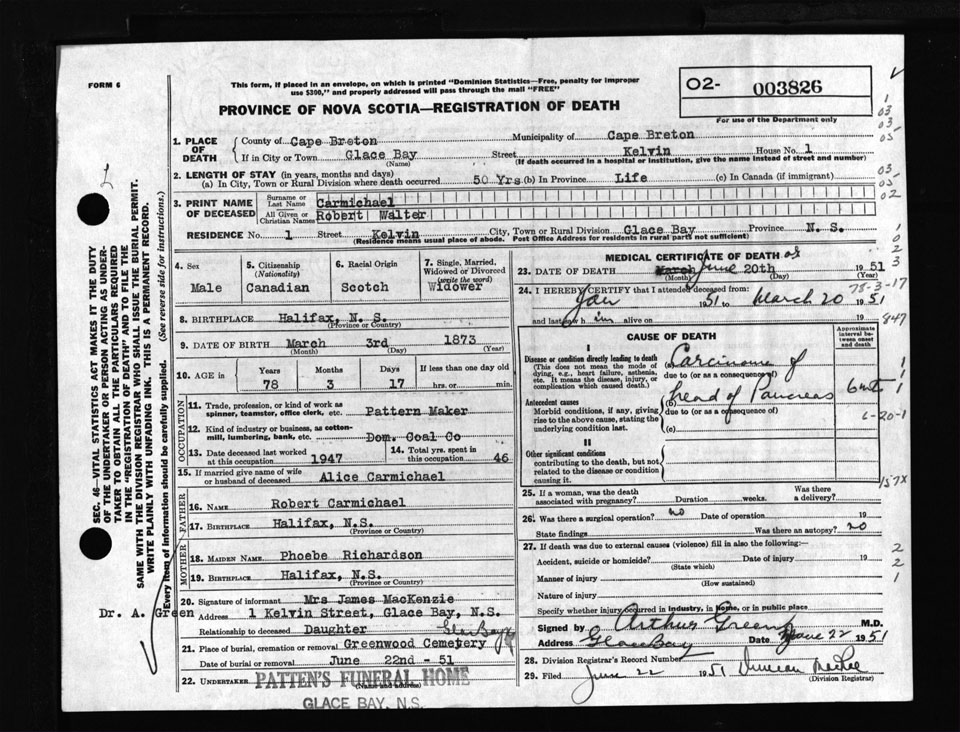 FORM 6
This form, if placed in an envelope, on which is printed "Dominion Statistics—Free, penalty for improper
use $300," and properly addressed will pass through the mail "FREE"
PROVINCE OF NOVA SCOTIA—REGISTRATION OF DEATH
02- 003826
For use of the Department only
1. PLACE OF DEATH
County of Cape Breton Municipality of Cape Breton
If in City or Town Glace Bay Street Kelvin House No. 1
(Name) (If death occurred in a hospital or institution, give the name instead of street and number)
2. LENGTH OF STAY (in years, months and days)
(a) In City, Town or Rural Division where death occurred 50 Yrs (b) In Province Life (c) In Canada (if immigrant)
3. PRINT NAME OF DECEASED
Surname or Last Name Carmichael
All Given or Christian Names Robert Walter
RESIDENCE No. 1 Street Kelvin City, Town or Rural Division Glace Bay Province N. S.
(Residence means usual place of abode. Post Office Address for residents in rural parts not sufficient)
4. Sex Male
5. Citizenship (Nationality) Canadian
6. Racial Origin Scotch
7. Single, Married, Widowed or Divorced (write the word) Widower
8. BIRTHPLACE Halifax, N. S.
(Province or Country)
9. DATE OF BIRTH March 3rd 1873
(Month) (Day) (Year)
10. AGE in Years 78 Months 3 Days 17 If less than one day old hrs. or min.
OCCUPATION
11. Trade, profession, or kind of work as spinner, teamster, office clerk, etc. Pattern Maker
12. Kind of industry or business, as cotton-mill, lumbering, bank, etc. Dom. Coal Co
13. Date deceased last worked at this occupation 1947 14. Total yrs. spent in this occupation 46
15. If married give name of wife or husband of deceased Alice Carmichael
FATHER
16. NAME Robert Carmichael
17. BIRTHPLACE Halifax, N.S.
(Province or Country)
MOTHER
18. MAIDEN NAME Phoebe Richardson
19. BIRTHPLACE Halifax, N.S.
(Province or Country)
20. Signature of informant Mrs James MacKenzie
Address 1 Kelvin Street, Glace Bay, N.S.
Relationship to deceased Daughter
21. Place of burial, cremation or removal Greenwood Cemetery Glace Bay
Date of burial or removal June 22nd - 51
22. UNDERTAKER PATTEN'S FUNERAL HOME
(Name and address)
GLACE BAY, N.S.
MEDICAL CERTIFICATE OF DEATH
23. DATE OF DEATH March June 20th 1951
(Month) (Day)
24. I HEREBY CERTIFY that I attended deceased from:
Jan 1951 to March 20 1951
and last saw h im alive on 19
78-3-17
847
CAUSE OF DEATH
Approximate interval between onset and death
I
Disease or condition directly leading to death
(This does not mean the mode of dying, e.g., heart failure, asthenia, etc. It means the disease, injury, or complication which caused death.)
(a) Carcinoma of
due to (or as a consequence of)
(b) head of Pancreas 6 mts
Antecedent causes
Morbid conditions, if any, giving rise to the above cause, stating the underlying condition last.
due to (or as a consequence of)
(c)
6-20-1
II
Other significant conditions
contributing to the death, but not related to the disease or condition causing it.
157X
25. If a woman, was the death associated with pregnancy? Duration weeks. Was there a delivery?
26. Was there a surgical operation? no Date of operation 19
State findings Was there an autopsy? no
27. If death was due to external causes (violence) fill in also the following:—
Accident, suicide or homicide? Date of injury 19
(State which)
Manner of injury
(How sustained)
Nature of injury
Specify whether injury occurred in industry, in home, or in public place
Signed by Arthur Green M.D.
Address Glace Bay Date June 22 1951
28. Division Registrar's Record Number
29. Filed June 22 1951 Duncan
(Division Registrar)
SEC. 46—VITAL STATISTICS ACT MAKES IT THE DUTY
OF THE UNDERTAKER OR PERSON ACTING AS UNDER-
TAKER TO OBTAIN ALL THE PARTICULARS REQUIRED
IN THE "REGISTRATION OF DEATH" AND TO FILE THE
SAME WITH THE DIVISION REGISTRAR WHO SHALL ISSUE THE BURIAL PERMIT.
WRITE PLAINLY WITH UNFADING INK. THIS IS A PERMANENT RECORD.
Every item of information should be carefully supplied. (See reverse side for instructions.)
Dr. A. Green